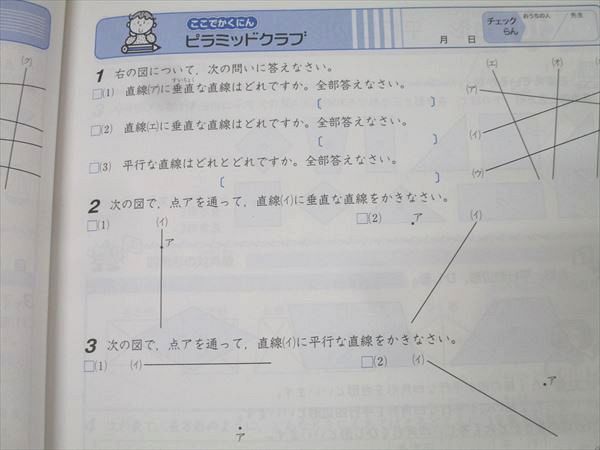 (ク)
ここでかくにん
ピラミッドクラブ²
月 日
チェック
らん
おうちの人
先生
1 右の図について，次の問いに答えなさい。
□(1) 直線(ア)に垂直な直線はどれですか。全部答えなさい。
すいちょく
〔 〕
□(2) 直線(エ)に垂直な直線はどれですか。全部答えなさい。
〔 〕
□(3) 平行な直線はどれとどれですか。全部答えなさい。
〔 〕
(エ) (オ)
(ア)
(イ)
(ウ)
2 次の図で，点アを通って，直線(イ)に垂直な直線をかきなさい。
□(1) (イ) ア
□(2) ア (イ)
3 次の図で，点アを通って，直線(イ)に平行な直線をかきなさい。
□(1) (イ) ア
□(2) (イ) ア